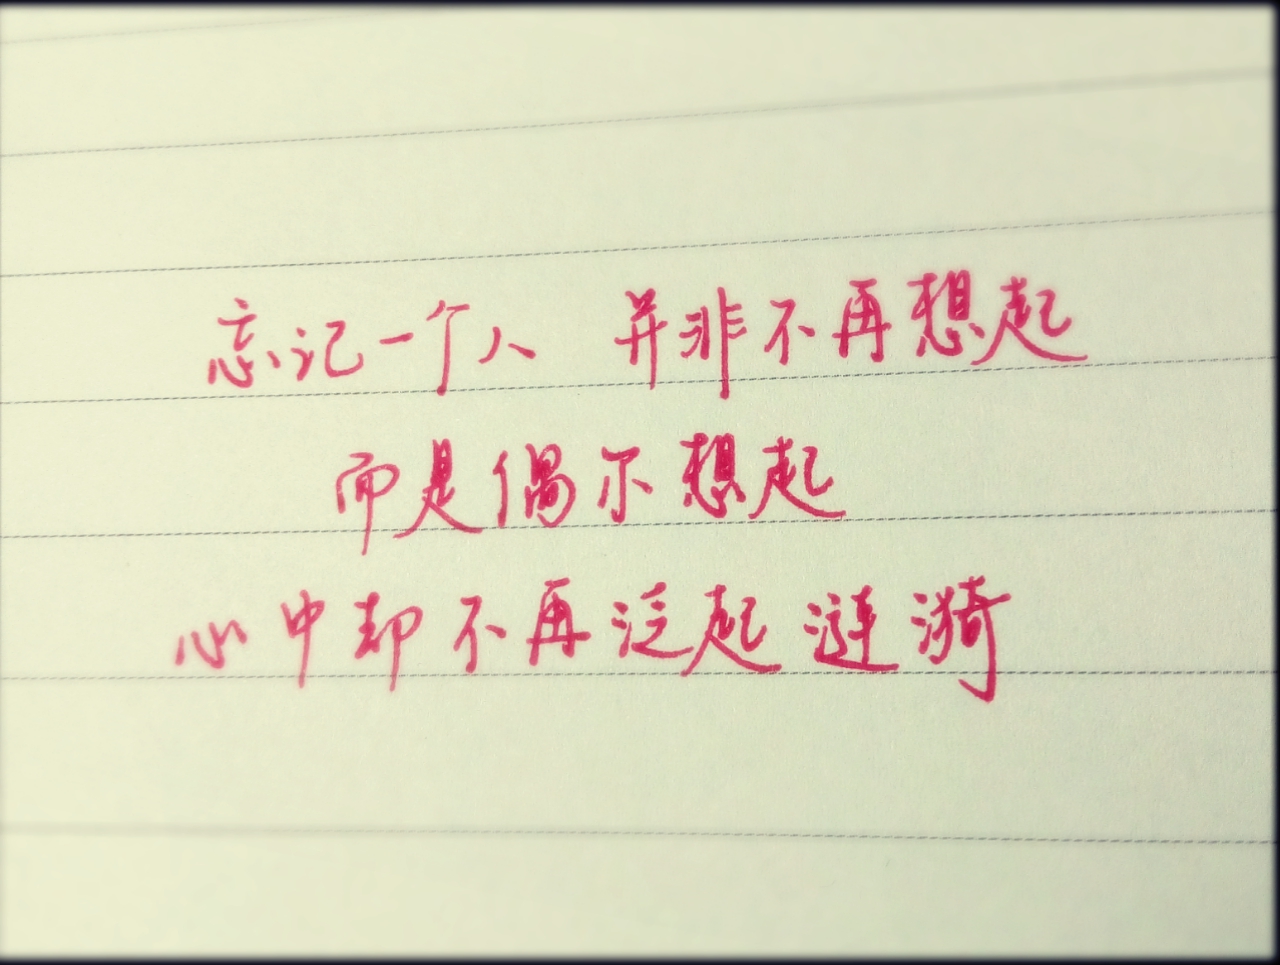 忘记一个人 并非不再想起
而是偶尔想起
心中却不再泛起涟漪